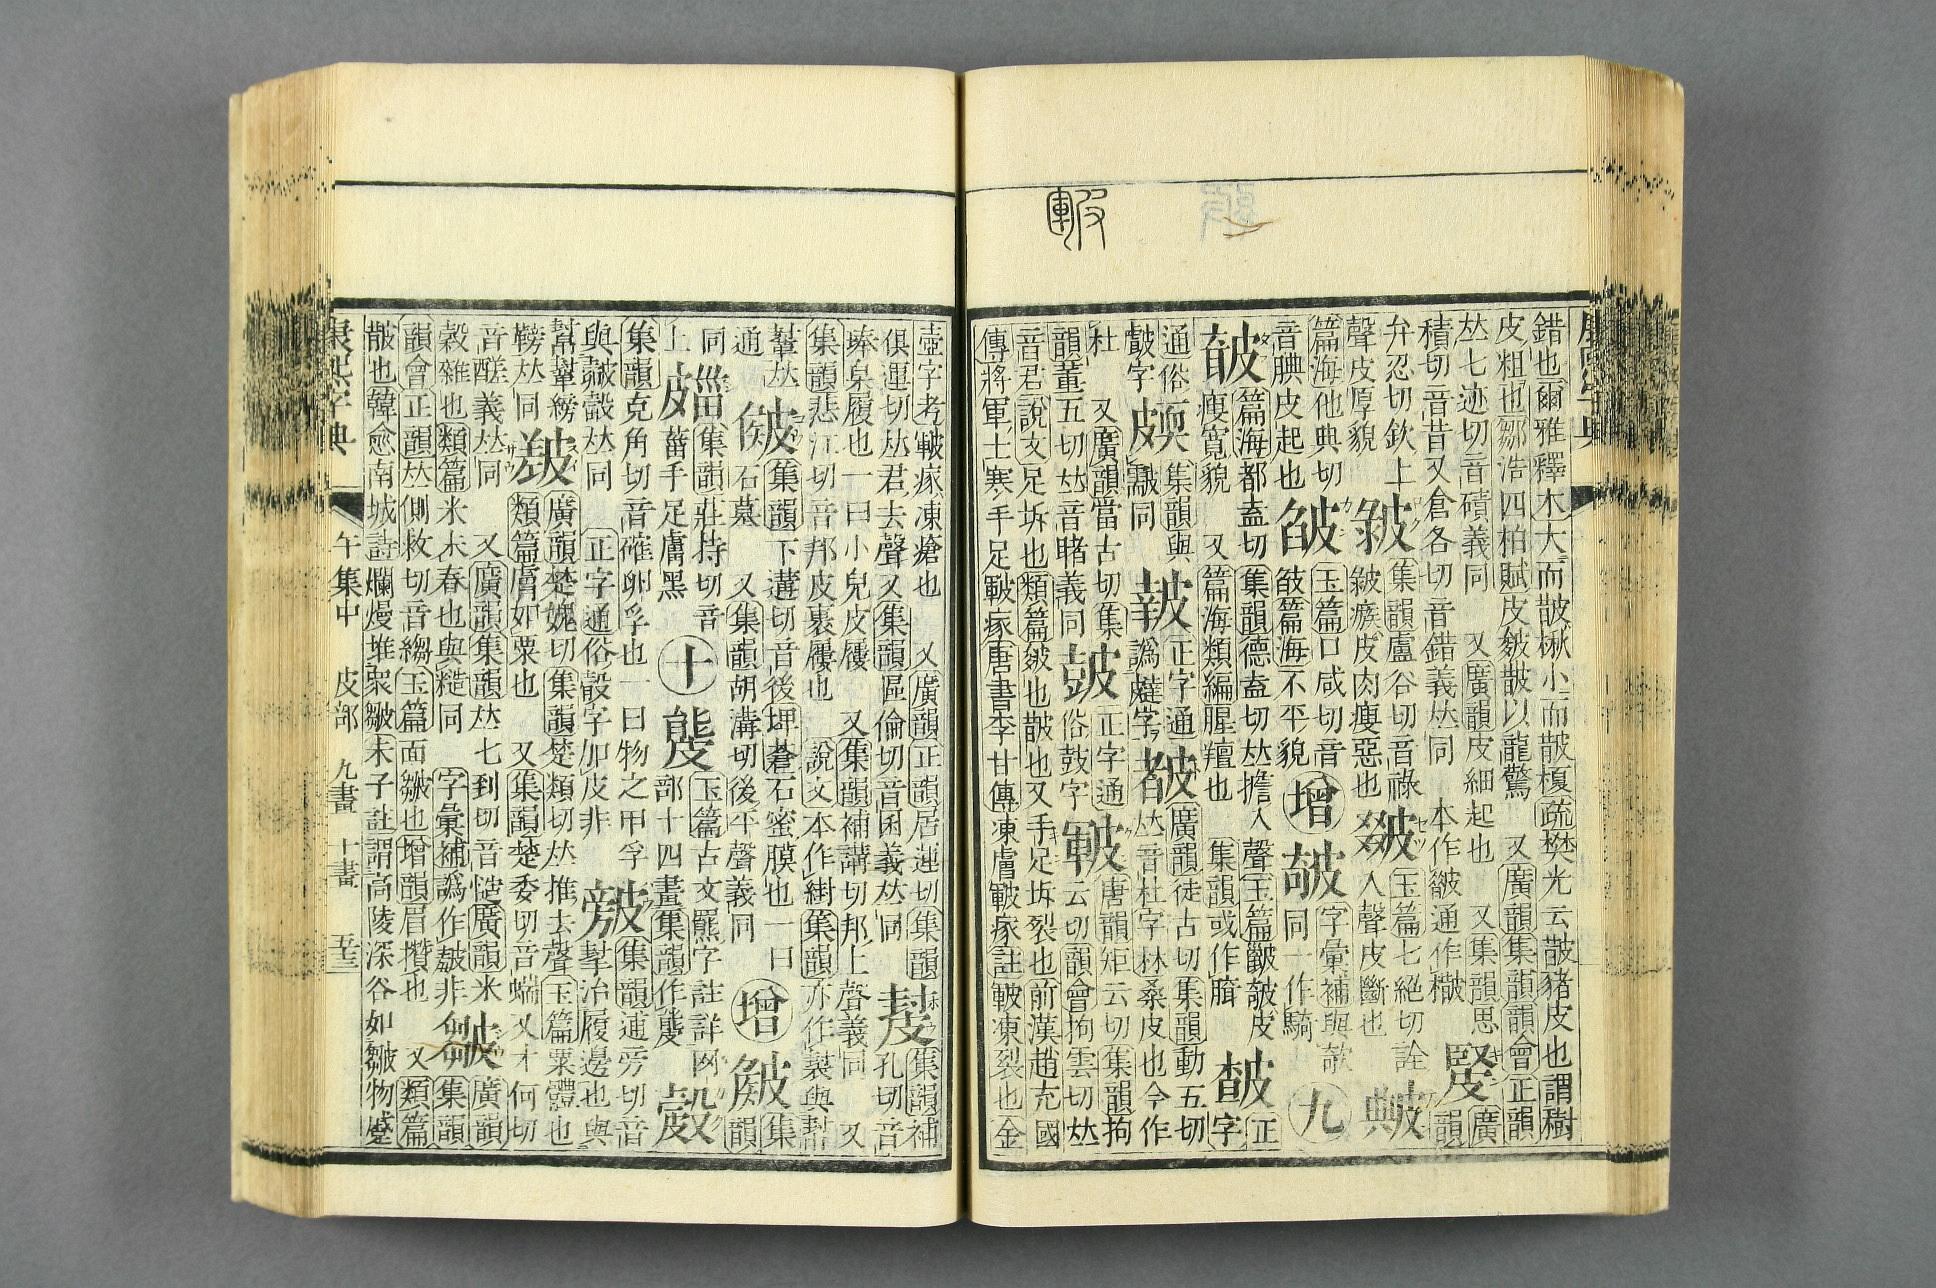 康熙字典
錯也爾雅釋木大而皵楸小而皵榎疏樊光云皵豬皮也謂樹
皮粗也鄒浩四柏賦皮皴皵以龍驚 又廣韻集韻韻會正韻
𠀤七迹切音磧義同 又廣韻皮細起也 又集韻思
積切音昔又倉各切音錯義𠀤同 本作皴通作
廣
韻
弁忍切欽上
聲皮厚貌
集韻盧谷切音祿
皮肉瘦惡也
玉篇七絕切詮
入聲皮斷也
篇海他典切
音腆皮起也
玉篇口咸切音
篇海不平貌
增
字彙補與
同一作騎
九
篇海都盍切集韻德盍切𠀤擔入聲玉篇
瘦寬貌 又篇海類編腥羶也 集韻或作
正
字
通俗
字
集韻與
同
正字通
譌 字
廣韻徒古切集韻動五切
𠀤音杜字林桑皮也今作
杜 又廣韻當古切集
韻董五切𠀤音睹義同
皷
正字通
俗鼓字
皸
唐韻矩云切集韻拘
云切韻會拘雲切𠀤
音君說文足坼也類篇皴也皵也又手足坼裂也前漢趙充國
傳將軍士寒手足皸瘃唐書李甘傳凍膚皸瘃註皸凍裂也金
壺字考皸瘃凍瘡也 又廣韻正韻居運切集韻
俱運切𠀤君去聲又集韻區倫切音囷義𠀤同
集韻補
孔切音
琫枲履也一曰小兒皮屨 又集韻補講切邦上聲義同 又
集韻悲江切音邦皮裹屨也 說文本作 集韻亦作 與
鞤𠀤
通
集韻下遘切音後埤蒼石蜜膜也一曰
石墓 又集韻胡溝切後平聲義同
增
集
韻
同
上
集韻莊持切音
菑手足膚黑
十
玉篇古文羆字註詳网
部十四畫集韻作
集韻克角切音確卵孚也一曰物之甲孚
與 㱿𠀤同 正字通俗㱿字加皮非
集韻逋旁切音
治履邊也與
幫鞤縍
𠀤同
廣韻楚愧切集韻楚類切𠀤推去聲玉篇粟體也
類篇膚如粟也 又集韻楚委切音揣又才何切
音醝義𠀤同 又廣韻集韻𠀤七到切音慥廣韻米
穀雜也類篇米未舂也與糙同 字彙補譌作 非
皺
廣韻
集韻
韻會正韻𠀤側救切音縐玉篇面皺也增韻眉攢也 又類篇
皵也韓愈南城詩爛熳堆衆皺朱子註謂高陵深谷如皺物蹙
康熙字典 午集中 皮部 九畫 十畫 五三